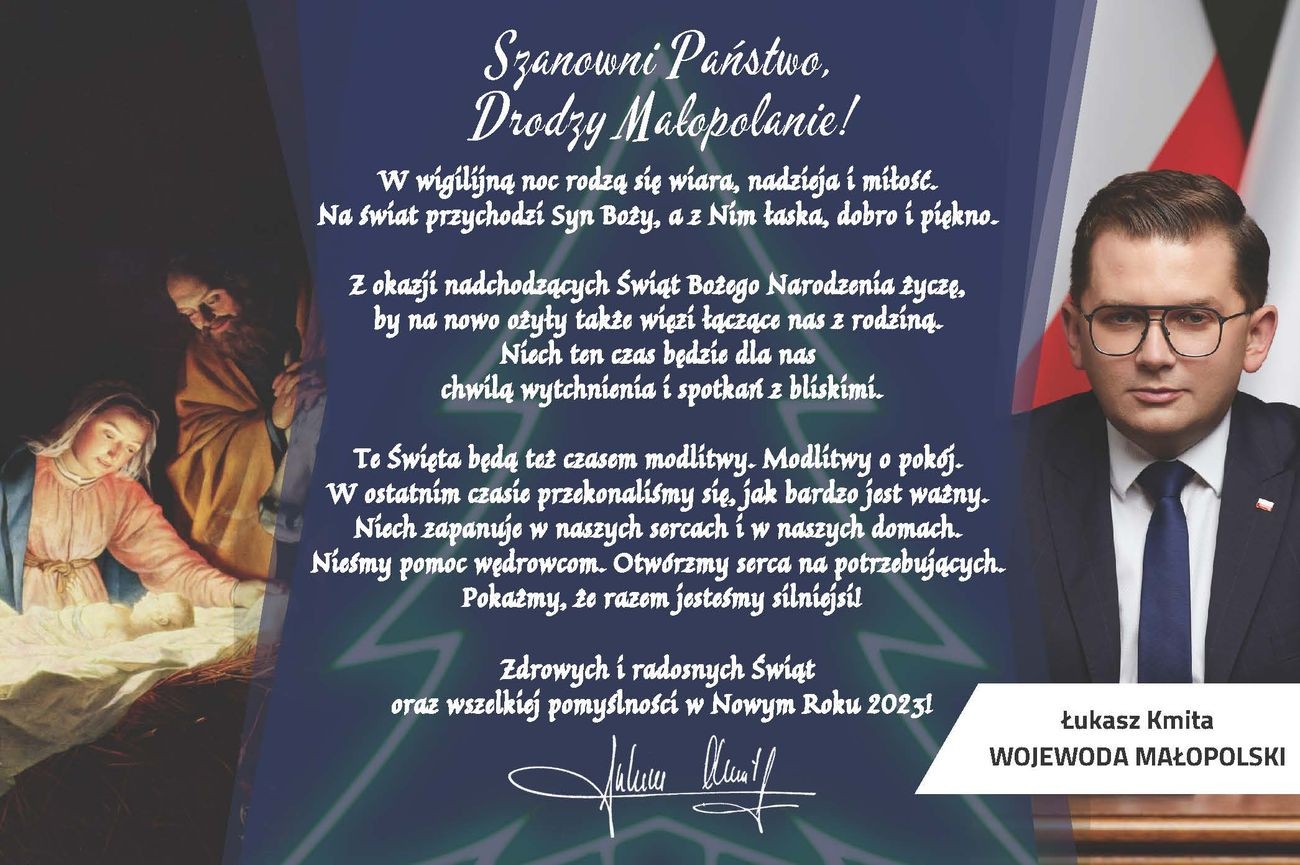 Szanowni Państwo,
Drodzy Małopolanie!
W wigilijną noc rodzą się wiara, nadzieja i miłość.
Na świat przychodzi Syn Boży, a z Nim łaska, dobro i piękno.
Z okazji nadchodzących Świąt Bożego Narodzenia życzę,
by na nowo ożyły także więzi łączące nas z rodziną.
Niech ten czas będzie dla nas
chwilą wytchnienia i spotkań z bliskimi.
Te Święta będą też czasem modlitwy. Modlitwy o pokój.
W ostatnim czasie przekonaliśmy się, jak bardzo jest ważny.
Niech zapanuje w naszych sercach i w naszych domach.
Nieśmy pomoc wędrowcom. Otwórzmy serca na potrzebujących.
Pokażmy, że razem jesteśmy silniejsi!
Zdrowych i radosnych Świąt
oraz wszelkiej pomyślności w Nowym Roku 2023!
Łukasz Kmita
WOJEWODA MAŁOPOLSKI